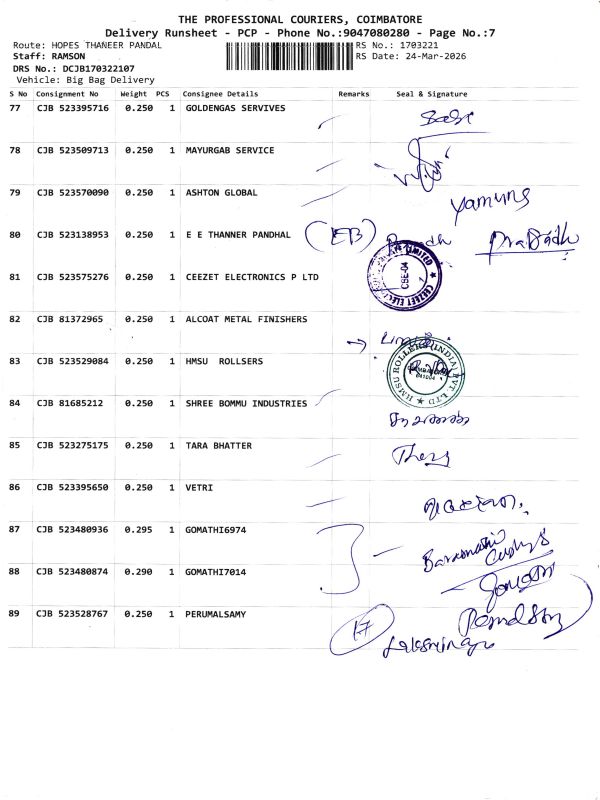 THE PROFESSIONAL COURIERS, COIMBATORE
Delivery Runsheet - PCP - Phone No.:9047080280 - Page No.:7
Route: HOPES THANEER PANDAL RS No.: 1703221
Staff: RAMSON RS Date: 24-Mar-2026
DRS No.: DCJB170322107
Vehicle: Big Bag Delivery
S No Consignment No Weight PCS Consignee Details Remarks Seal & Signature
77 CJB 523395716 0.250 1 GOLDENGAS SERVIVES
78 CJB 523509713 0.250 1 MAYURGAB SERVICE
79 CJB 523570090 0.250 1 ASHTON GLOBAL Yamuns
80 CJB 523138953 0.250 1 E E THANNER PANDHAL (EB)
81 CJB 523575276 0.250 1 CEEZET ELECTRONICS P LTD CBE-04
82 CJB 81372965 0.250 1 ALCOAT METAL FINISHERS
83 CJB 523529084 0.250 1 HMSU ROLLSERS HMSU ROLLERS (INDIA) PVT LTD
84 CJB 81685212 0.250 1 SHREE BOMMU INDUSTRIES
85 CJB 523275175 0.250 1 TARA BHATTER
86 CJB 523395650 0.250 1 VETRI
87 CJB 523480936 0.295 1 GOMATHI6974
88 CJB 523480874 0.290 1 GOMATHI7014
89 CJB 523528767 0.250 1 PERUMALSAMY
17